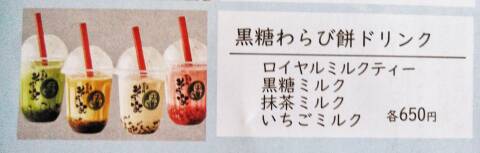 黒糖わらび餅ドリンク
ロイヤルミルクティー
黒糖ミルク
抹茶ミルク
いちごミルク 各650円